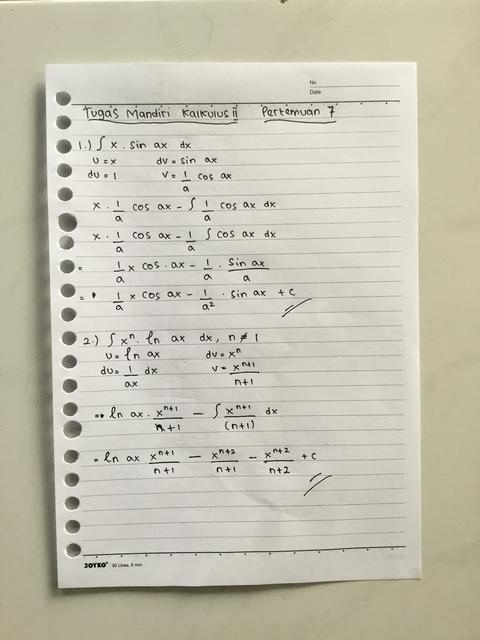 No
Date
Tugas Mandiri Kalkulus II Pertemuan 7
1.) ∫ x . sin ax dx
u = x dv = sin ax
du = 1 v = 1/a cos ax
x . 1/a cos ax - ∫ 1/a cos ax dx
x . 1/a cos ax - 1/a ∫ cos ax dx
= 1/a x cos . ax - 1/a . sin ax/a
= 1/a x cos ax - 1/a² . sin ax + c
2.) ∫ xⁿ . ln ax dx, n ≠ 1
u = ln ax dv = xⁿ
du = 1/ax dx v = xⁿ⁺¹/n+1
=> ln ax . xⁿ⁺¹/n+1 - ∫ xⁿ⁺¹/(n+1) dx
= ln ax xⁿ⁺¹/n+1 - xⁿ⁺²/n+1 - xⁿ⁺²/n+2 + c
JOYKO 30 Lines, 8 mm